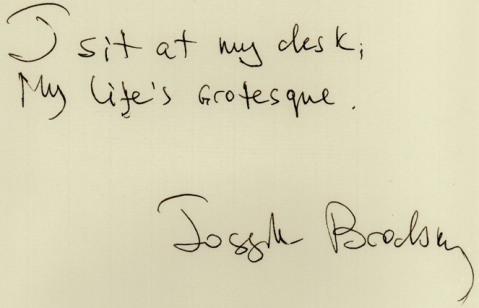 I sit at my desk;
My life's grotesque.
Joseph Brodsky